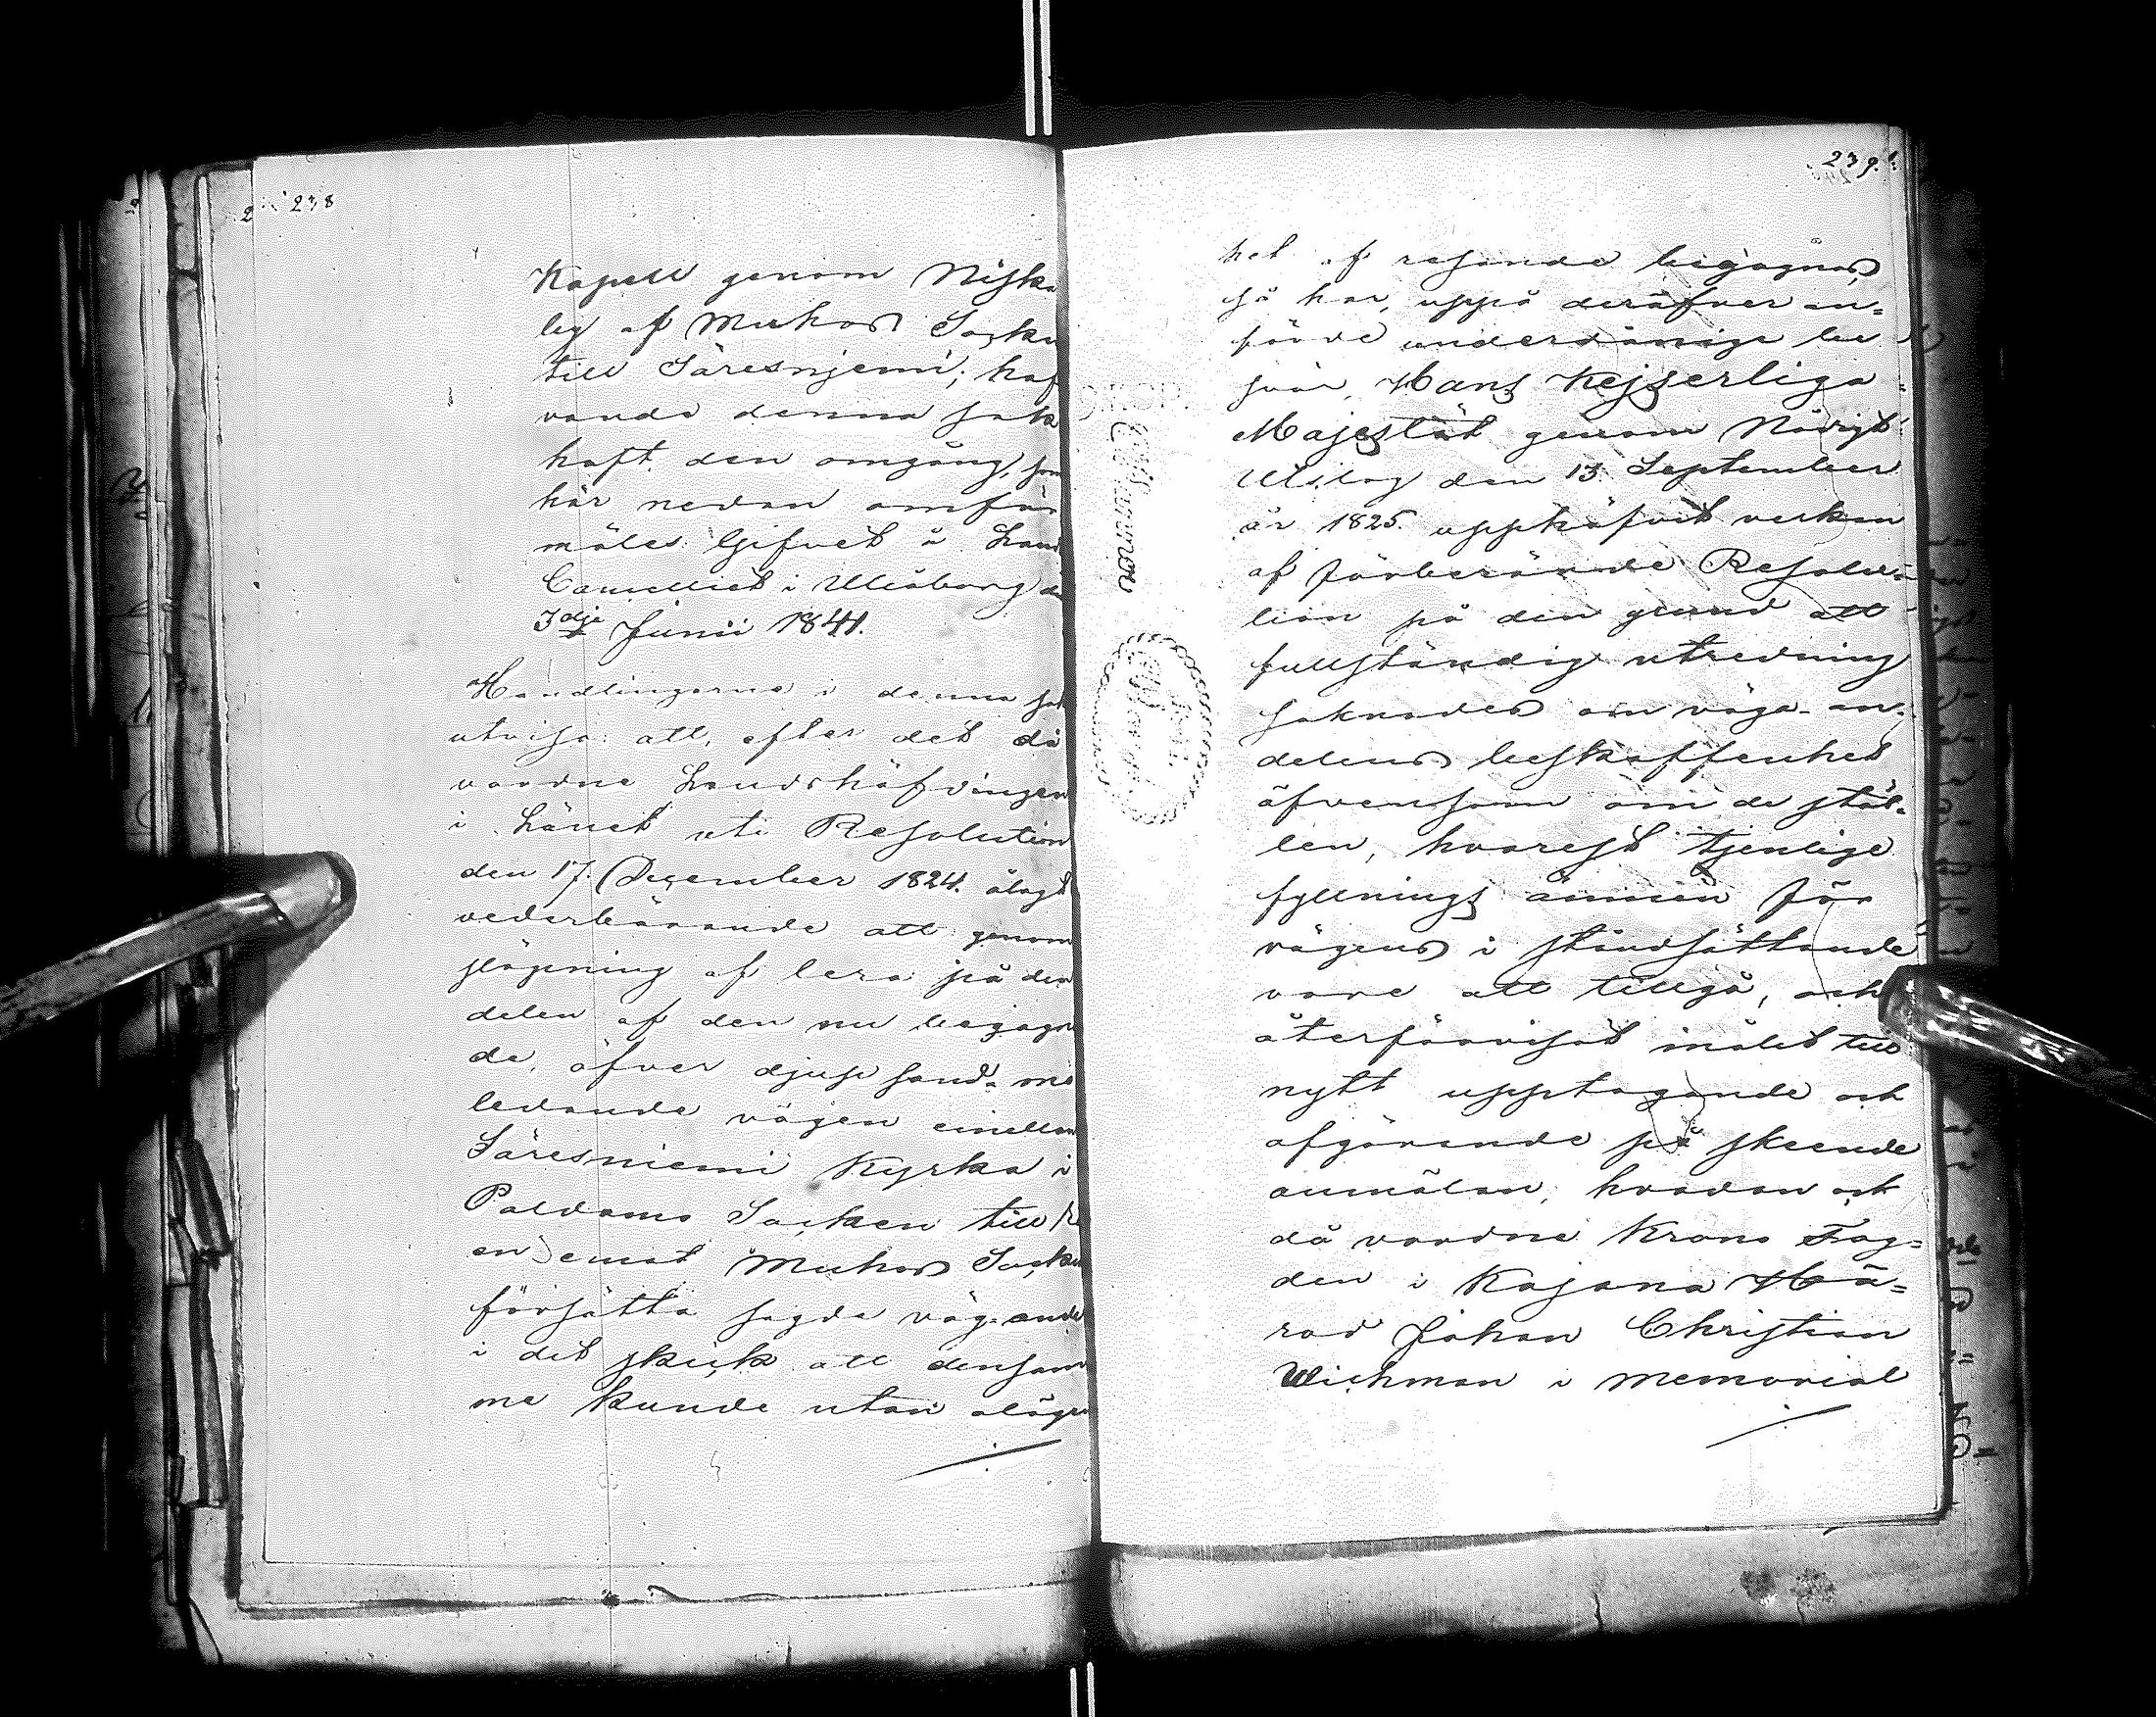 238
Kapell genom Niska
by af Muhos Socken
till Säresnjemi; haf
vande denna sak
haft den omgång, som
här nedan omför
mäles. Gifvet å Lands
Cancelliet i Uleåborg den
3dje Junii 1841.
Handlingarne i denna sak
utvisa: att, efter det då
vardne Landshöfdingen
i Länet uti Resolution
den 17. December 1824. ålagt
vederbörande att genom
släpning af lera på den
delen af den nu begagna
de, öfver djup sand-mo
ledande vägen emellan
Säresniemi Kyrka i
Paldamo Socken till
en emot Muhos Socken
försätta sagde väg-andel
i det skick att densam
me kunde utan olägen
239.
het af resande begagnas,
så har, uppå deröfver an=
förde underdånige be
svär, Hans Kejserliga
Majestät genom Nådigt
Utslag den 13. September
år 1825. upphäfvit verkan
af förberörde Resolu=
tion på den grund att
fullständig utredning
saknades om väga-an=
delens beskaffenhet
äfvensom om de stäl=
len, hvarest tjenlige
fyllnings ämnen för
vägens i ståndsättande
vore att tillgå, och
återförvisat målet till
nytt upptagande och
afgörande på skeende
anmälan, hvadan och
då vardne Krono Fog=
den i Kajana Hä=
rad Johan Christian
Wichman i memorial